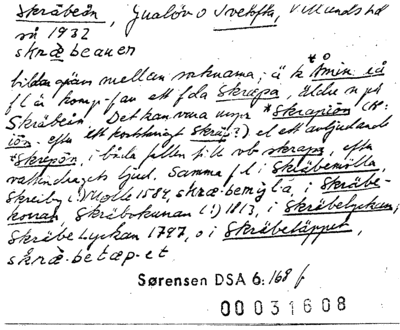 Skräbeån, Gualöv o Ivetofta, Villands hd
så 1932
skræbeanen
mellan socknarna; å k *Åmin iå
f l är komp. fan ett fda Skräpa, äldre n på
Skräbeån. Det kan vara urspr *Skrapiōn (*H-
iōn. efter ett kortstavigt Skrap?) el ett avljudande
*Skrēpōn, i båda fallen till vb skrapa, efter
vattendragets ljud. Samma f l i Skräbemölla,
Skreiby (:) Mølle 1584, skræbemølla, i Skräbe-
Skräbokunan (!) 1813, i Skräbelyckan;
Skräbe Lyckan 1787, o i Skräbetäppet,
skræ-betæp-et.
Sørensen DSA 6: 168 f
00031608